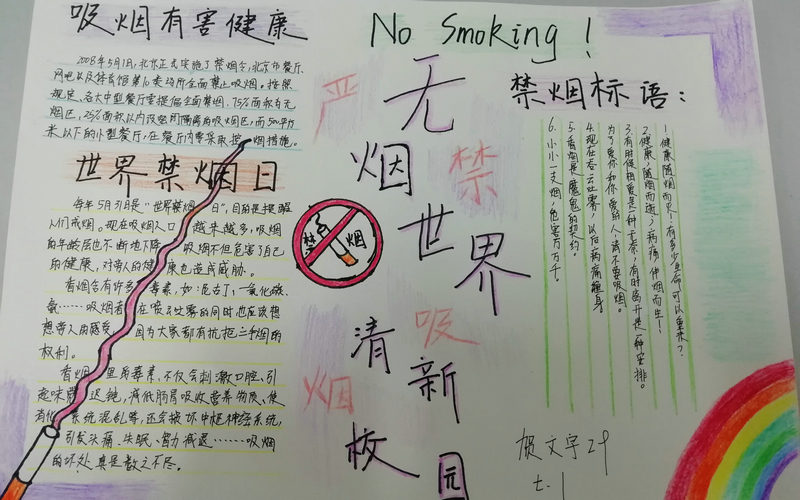 吸烟有害健康
2008年5月1日,北京正式实施了禁烟令,北京市餐厅、
网吧以及体育馆等10类场所全面禁止吸烟。按照
规定、各大中型餐厅要提倡全面禁烟。75%面积为无
烟区,25%面积以内设密闭隔离的吸烟区,而500平方
米以下的小型餐厅,在餐厅内要采取控烟措施。
世界禁烟日
每年5月31日是“世界禁烟日”,目的是提醒
人们戒烟。现在吸烟人口越来越多,吸烟
的年龄层也不断地下降。吸烟不但危害了自己
的健康,对旁人的健康也造成威胁。
香烟含有许多毒素,如:尼古丁,一氧化碳、
氨……吸烟者在吸云吐雾的同时也应该想
想旁人的感受,因为大家都有抗拒二手烟的
权利。
香烟里的毒素,不仅会刺激口腔、引
起味蕾迟钝,减低肠胃吸收营养物质、使
消化系统混乱等,还会破坏中枢神经系统,
引发头痛、失眠、智力减退……吸烟
的坏处真是数之不尽。
No Smoking!
严禁吸烟
无烟世界
清新校园
禁烟
禁烟标语:
1.健康随烟而灭!有多少生命可以重来?
2.健康,随烟而逝;病痛伴烟而生!
3.有时候相爱是一种无奈,有时离开是一种安排。
为了爱你和你爱的人请不要吸烟。
4.现在吞云吐雾,以后病痛缠身
5.香烟是魔鬼的契约。
6.小小一支烟,危害万万千。
贺文字29
七.1